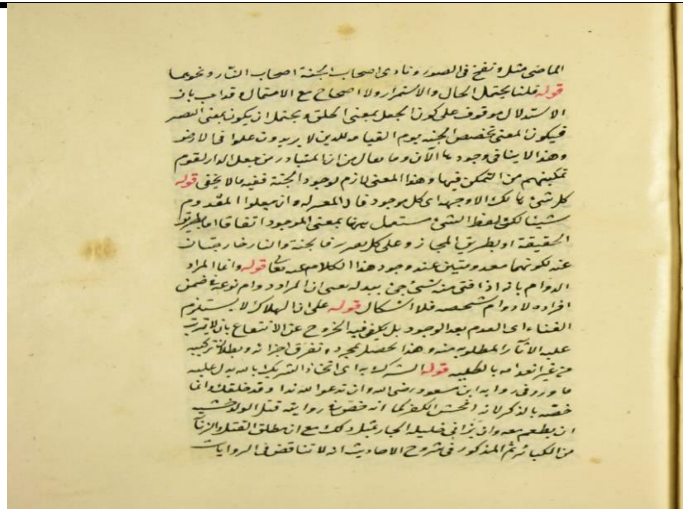 الماضى مثل ونفخ فى الصور ونادى اصحاب الجنة اصحاب النار ونحوهما
قوله قلنا يحتمل الحال والاستمرار ولا احتجاج مع الاحتمال وقد اجيب بان
الاستدلال موقوف على كون الجعل بمعنى الخلق ويحتمل ان يكون بمعنى التصيير
فيكون المعنى تخصيص الجنة يوم القيامة للذين لا يريدون علوا فى الارض
وهذا لا ينافى وجودها الآن وما يقال من ان المتبادر من جعل الدار لقوم
تمكينهم من التمكن فيها وهذا المعنى لازم لوجود الجنة ففيه ما لا يخفى قوله
كل شئ هالك الا وجهه اى كل موجود فان المعتزلة وان جعلوا المعدوم
شيئا لكن لفظ الشئ مستعمل بمعنى الموجود اتفاقا اما بطريق
الحقيقة او بطريق المجاز وعلى كل تقدير فالجنة والنار خارجتان
عنه لكونهما معدومتين عند وجود هذا الكلام عنه تعالى قوله وانما المراد
الدوام بانه اذا فنى منه شئ جئ ببدله يعنى ان المراد دوام نوعه فى ضمن
افراده لا دوام شخصه فلا اشكال قوله على ان الهلاك لا يستلزم
الفناء اى العدم بعد الوجود بل يكفى فيه الخروج عن الانتفاع بان لا يترتب
عليه الآثار المطلوبة منه وهذا يحصل بمجرد تفرق اجزائه وبطلان تركيبه
من غير انعدامه بالكلية قوله الشرك بالله اى اتخاذ الشريك بالله يدل عليه
ما ورد فى رواية ابن مسعود رضى الله وان تدعو لله ندا وقد خلقك وانما
خصه بالذكر لانه افحش الكفر كما انه خص فى رواية قتل الولد خشية
ان يطعم معه وان يزانى حليلة الجار قيل ذلك مع ان مطلق القتل والزنا
من الكبائر ثم المذكور فى شروح الاحاديث انه لا تناقض فى الروايات